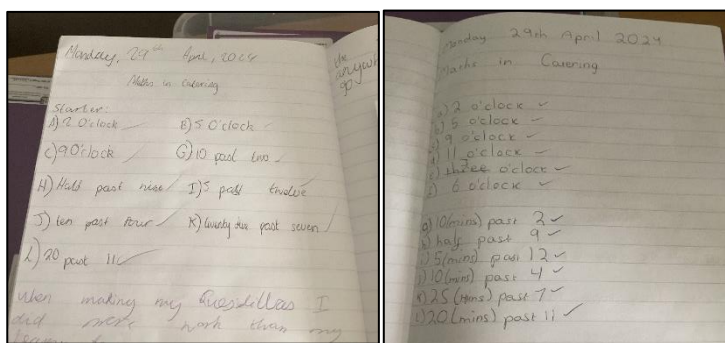 Monday, 29th April, 2024
Maths in Catering
Starter:
A) 2 O'clock B) 5 O'clock
C) 9 O'clock G) 10 past two
H) Half past nine I) 5 past twelve
J) ten past four K) twenty five past seven
L) 20 past 11
when making my Quesidillas I
did more work than my
the
Monday 29th April 2024
Maths in Catering
a) 2 o'clock
5 o'clock
9 o'clock
11 o'clock
three o'clock
6 o'clock
g) 10(mins) past 2
h) half past 9
i) 5(mins) past 12
j) 10(mins) past 4
k) 25(mins) past 7
l) 20(mins) past 11